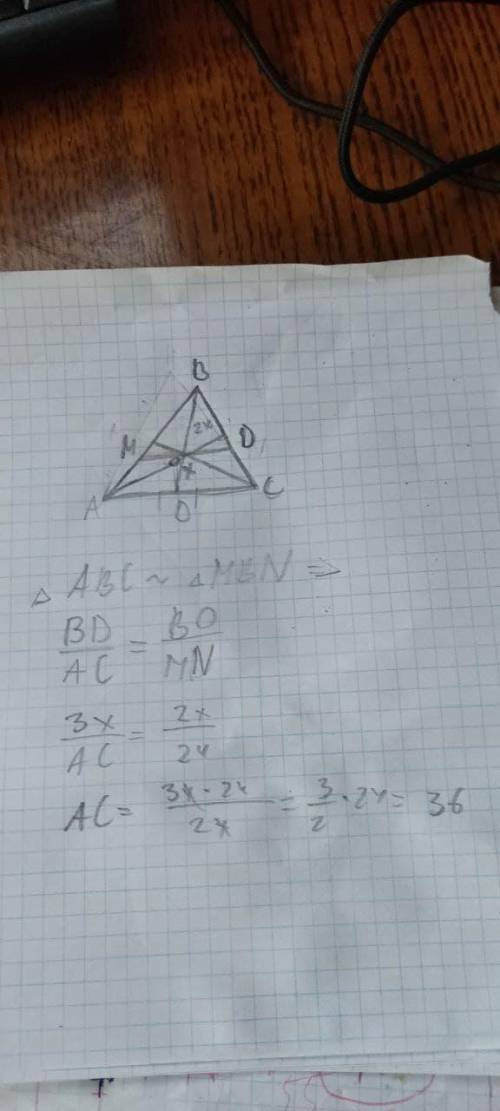 B
M
2x
D
O
x
A
D
C
△ ABC ~ △ MBN ⇒
BD/AC = BO/MN
3x/AC = 2x/24
AC = 3x · 24/2x = 3/2 · 24 = 36